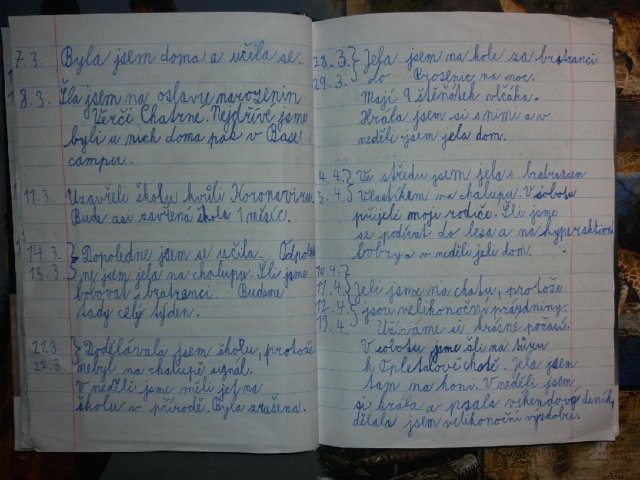 7.3. Byla jsem doma a učila se.
8.3. Šla jsem na oslavu narozenin
Věrči Chatrne. Nejdříve jsme
byli u nich doma pak v Base
campu.
11.3. Uzavřeli školu kvůli Koronaviru.
Bude asi zavřená škola 1 měsíc.
14.3. Dopoledne jsem se učila. Odpoled
15.3. ne jsem jela na chalupu. Šli jsme
bobrovat s bratranci. Budeme
tady celý týden.
21.3 Dodělávala jsem školu, protože
22.3 nebyl na chalupě signál.
V neděli jsme měli jet na
školu v přírodě. Byla zrušena.
28.3. Jela jsem na kole za bratranci
29.3. do Prosenic na noc.
Mají 9 štěňátek vlčáka.
Hrála jsem si s nimi a v
neděli jsem jela dom.
4.4. Ve středu jsem jela s bratrancem
5.4. Vlastíkem na chalupu. V sobotu
přijeli moji rodiče. Šli jsme
se podívat do lesa a na
bobry a v neděli jeli dom.
10.4.
11.4. Jeli jsme na chatu, protože
12.4. jsou velikonoční prázdniny.
13.4. Užíváme si krásné počasí.
V sobotu jsme šli na túru
k Opletalově chatě. Jela jsem
tam na koni. V neděli jsem
si hrála a psala víkendový deník,
dělala jsem velikonoční výzdobu.